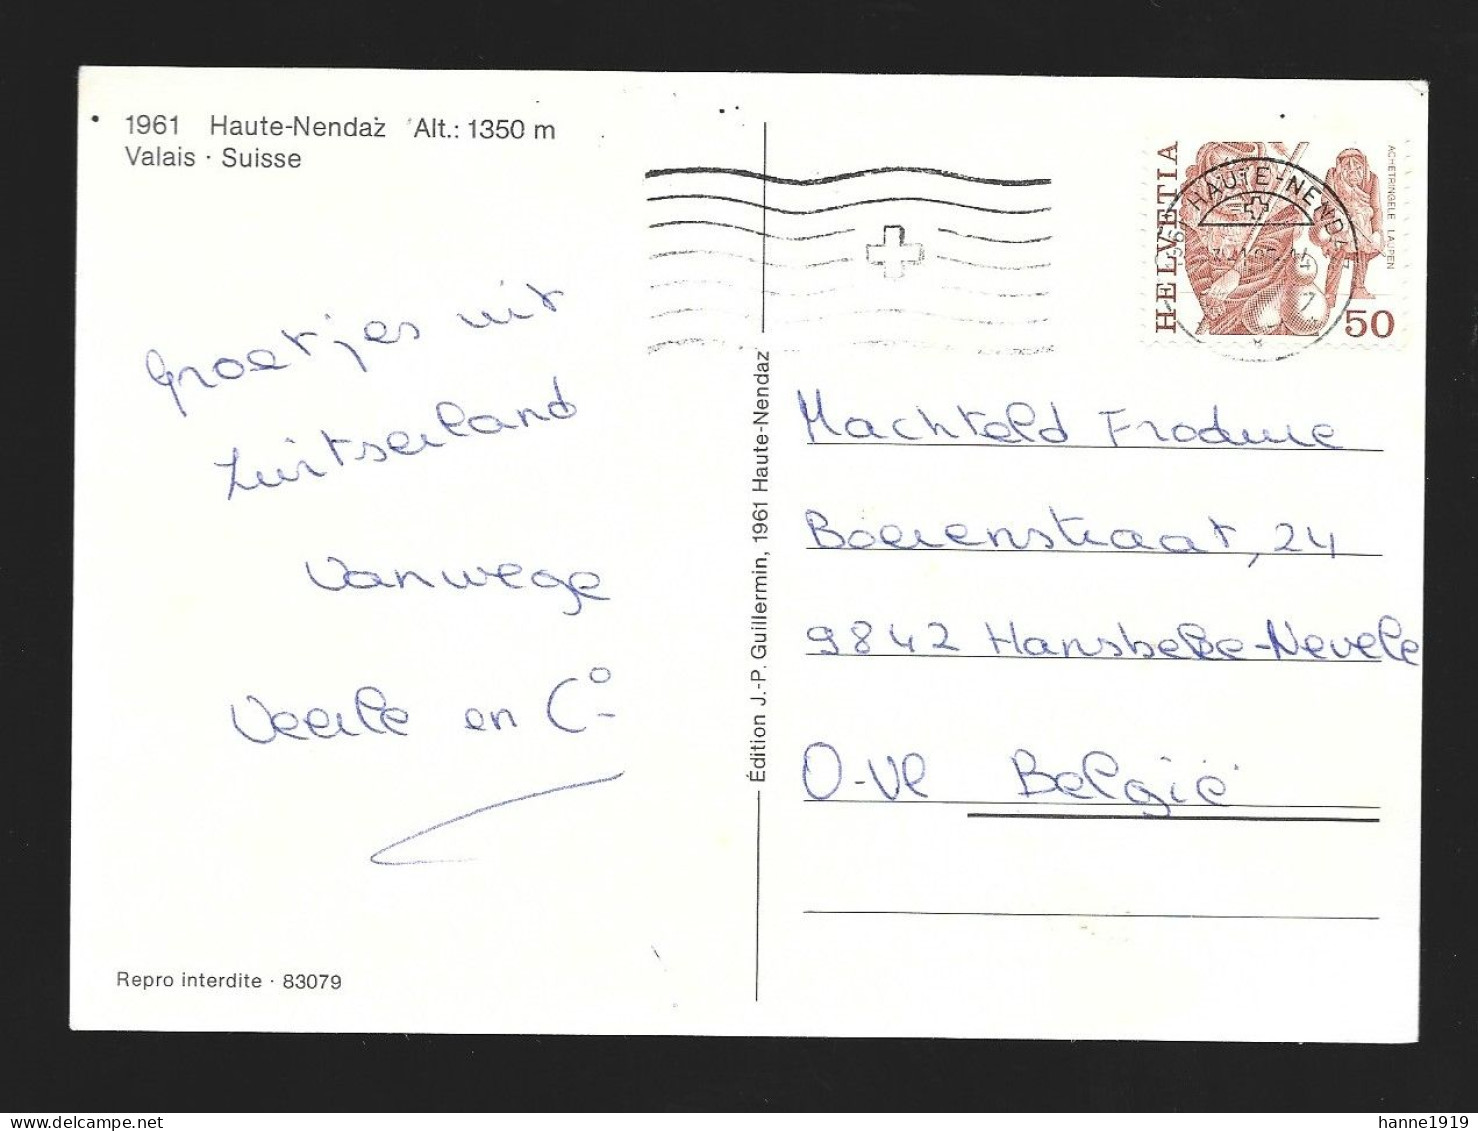 1961 Haute-Nendaz Alt.: 1350 m
Valais · Suisse
Groetjes uit
Zwitserland
Vanwege
Veerle en C°
Repro interdite · 83079
Édition J.-P. Guillermin, 1961 Haute-Nendaz
HELVETIA
ACHETRINGELE LAUPEN
50
1961 HAUTE-NENDAZ
Machteld Frodure
Boerenstraat, 24
9842 Hansbeke-Nevele
O-Vl België
hanne1919